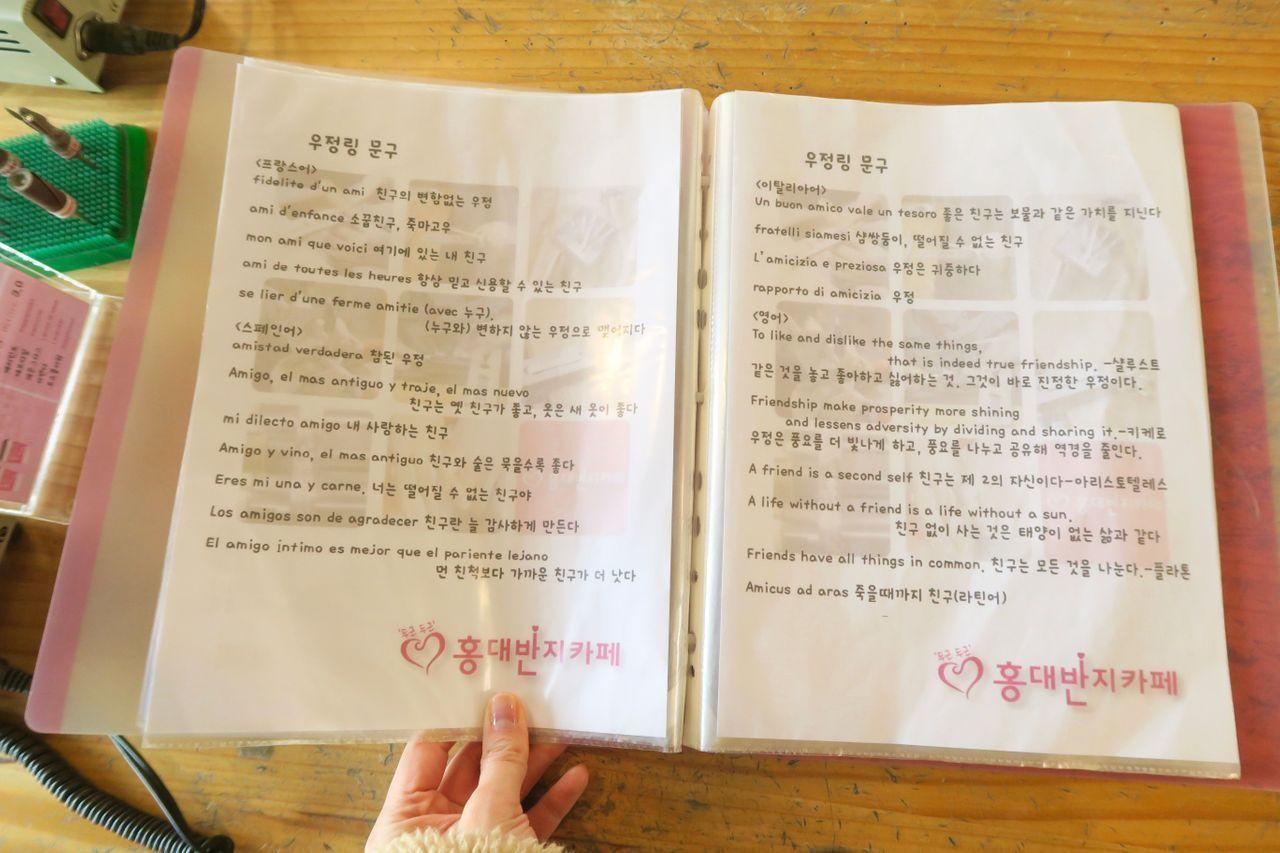 우정링 문구
<프랑스어>
fidelite d'un ami 친구의 변함없는 우정
ami d'enfance 소꿉친구, 죽마고우
mon ami que voici 여기에 있는 내 친구
ami de toutes les heures 항상 믿고 신용할 수 있는 친구
se lier d'une ferme amitie (avec 누구).
(누구와) 변하지 않는 우정으로 맺어지다
<스페인어>
amistad verdadera 참된 우정
Amigo, el mas antiguo y traje, el mas nuevo
친구는 옛 친구가 좋고, 옷은 새 옷이 좋다
mi dilecto amigo 내 사랑하는 친구
Amigo y vino, el mas antiguo 친구와 술은 묵을수록 좋다
Eres mi una y carne. 너는 떨어질 수 없는 친구야
Los amigos son de agradecer 친구란 늘 감사하게 만든다
El amigo íntimo es mejor que el pariente lejano
먼 친척보다 가까운 친구가 더 낫다
두근 두근
홍대반지카페
우정링 문구
<이탈리아어>
Un buon amico vale un tesoro 좋은 친구는 보물과 같은 가치를 지닌다
fratelli siamesi 샴쌍둥이, 떨어질 수 없는 친구
L'amicizia e preziosa 우정은 귀중하다
rapporto di amicizia 우정
<영어>
To like and dislike the same things,
that is indeed true friendship. -샬루스트
같은 것을 놓고 좋아하고 싫어하는 것. 그것이 바로 진정한 우정이다.
Friendship make prosperity more shining
and lessens adversity by dividing and sharing it.-키케로
우정은 풍요를 더 빛나게 하고, 풍요를 나누고 공유해 역경을 줄인다.
A friend is a second self 친구는 제 2의 자신이다-아리스토텔레스
A life without a friend is a life without a sun.
친구 없이 사는 것은 태양이 없는 삶과 같다
Friends have all things in common. 친구는 모든 것을 나눈다.-플라톤
Amicus ad aras 죽을때까지 친구(라틴어)
두근 두근
홍대반지카페